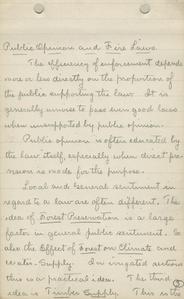 Public Opinion and Fire Laws.
The efficiency of enforcement depends
more or less directly on the proportion
of the public supporting the law. It is
generally unwise to pass even good laws
when unsupported by public opinion.
Public opinion is often educated by
the law itself, especially when direct pro-
vision is made for the purpose.
Local and General sentiment in
regard to a law are often different. The
idea of Forest Preservation is a large
factor in general public sentiment. So
also the Effect of Forest on Climate and
Water Supply. In irrigated sections
this is a practical idea. The third
idea is Timber Supply. This is the